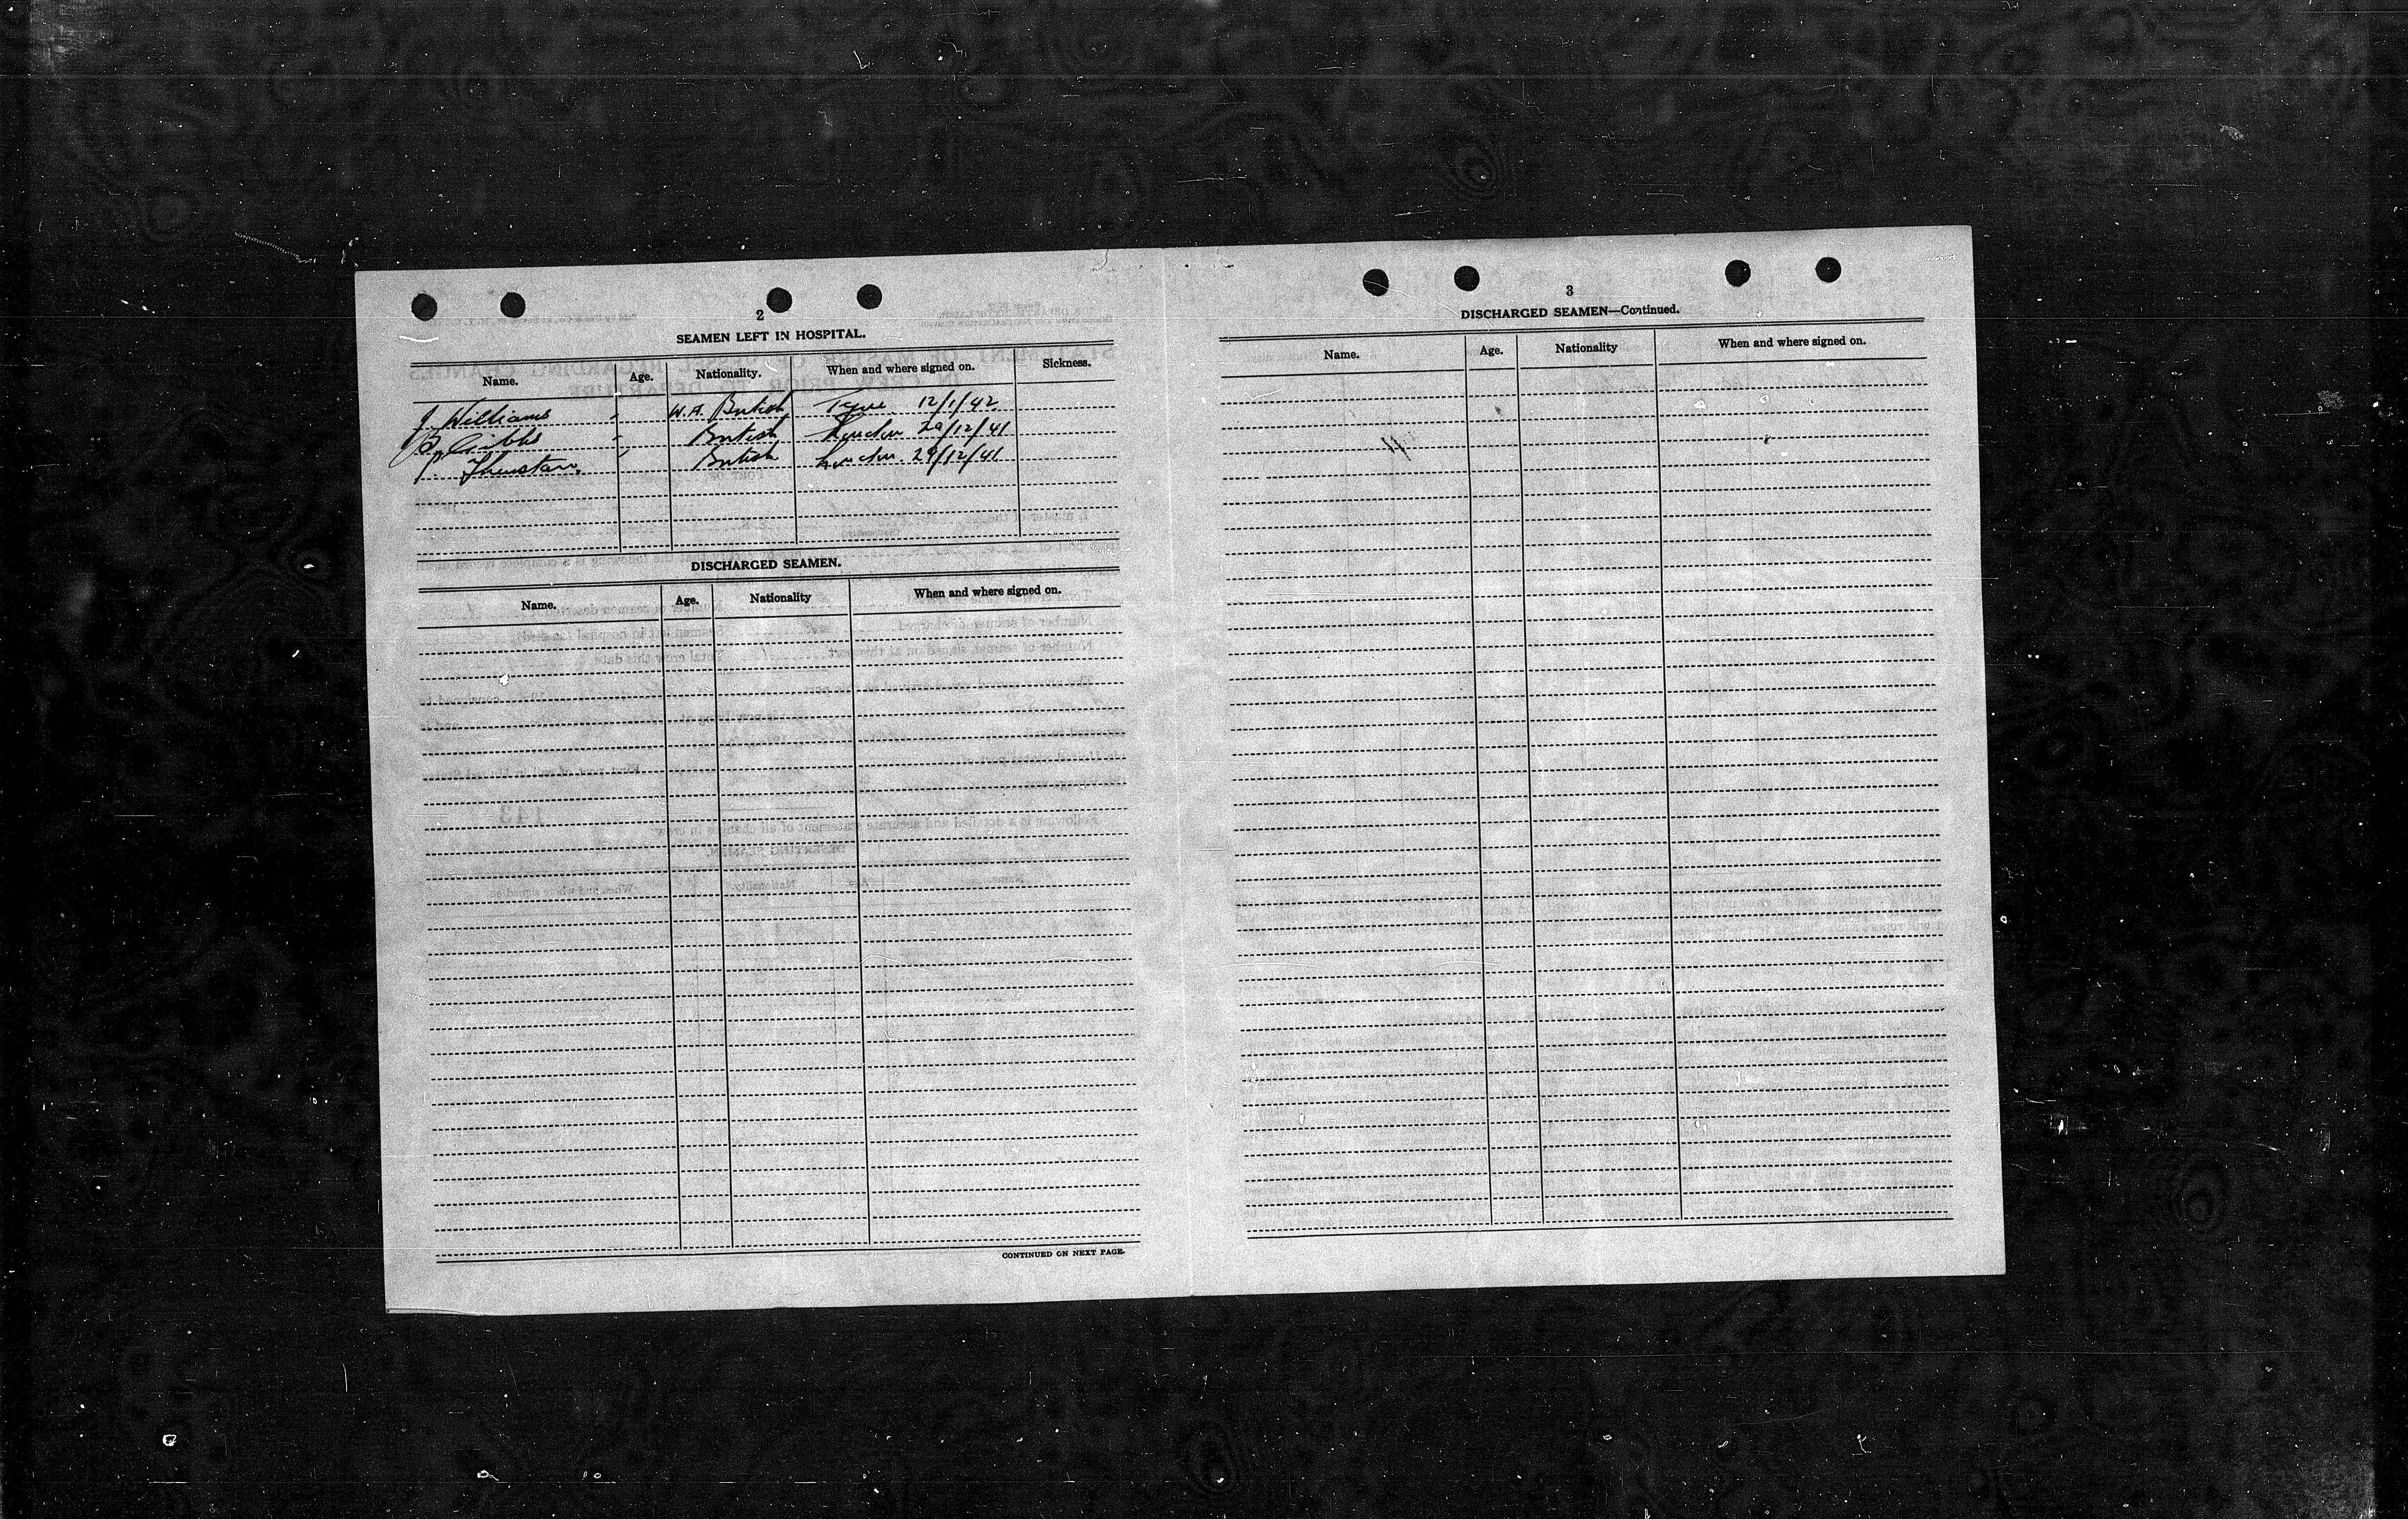 2
SEAMEN LEFT IN HOSPITAL.
Name. Age. Nationality. When and where signed on. Sickness.
J. Williams - W.A. British Tyne 12/1/42
B. Gibbs - British London 29/12/41
J. Thurstan - British London 29/12/41
DISCHARGED SEAMEN.
Name. Age. Nationality When and where signed on.
CONTINUED ON NEXT PAGE.
3
DISCHARGED SEAMEN—Continued.
Name. Age. Nationality When and where signed on.